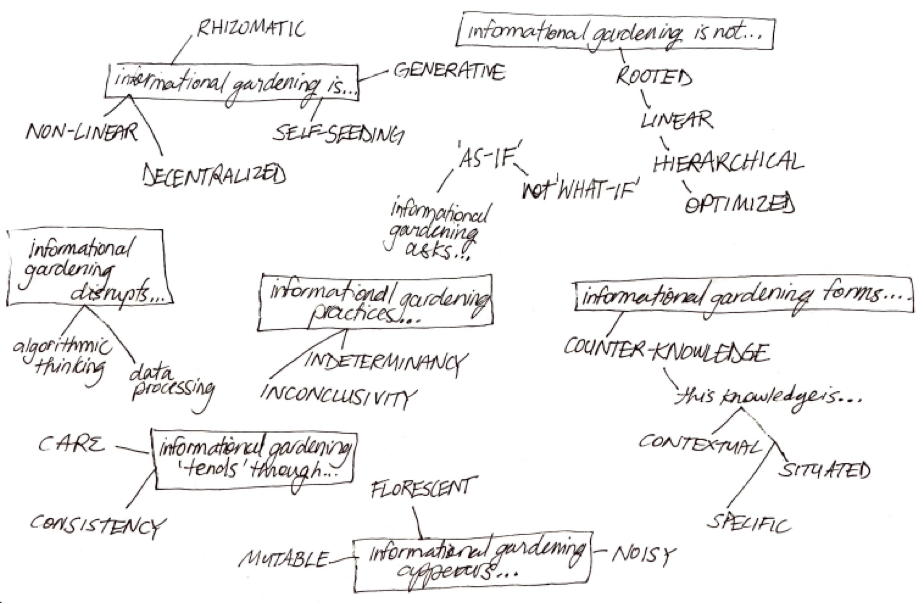 RHIZOMATIC
informational gardening is...
GENERATIVE
NON-LINEAR
SELF-SEEDING
DECENTRALIZED
informational gardening is not...
ROOTED
LINEAR
HIERARCHICAL
OPTIMIZED
'AS-IF'
not 'WHAT-IF'
informational
gardening
asks...
informational
gardening
disrupts...
algorithmic
thinking
data
processing
informational gardening
practices...
INDETERMINANCY
INCONCLUSIVITY
informational gardening forms....
COUNTER-KNOWLEDGE
this knowledge is...
CONTEXTUAL
SITUATED
SPECIFIC
CARE
informational gardening
'tends' through...
CONSISTENCY
FLORESCENT
MUTABLE
informational gardening
appears...
NOISY